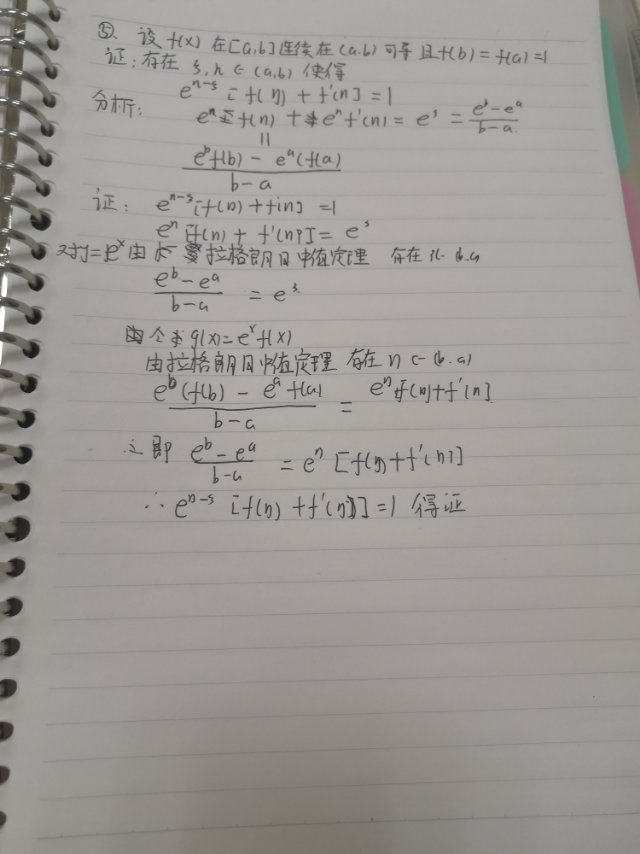 ⑤. 设 f(x) 在[a,b]连续在(a.b)可导且f(b)=f(a)=1
证:存在 ξ,η ∈ (a,b) 使得
e^{η-ξ} [f(η) + f'(η)] = 1
分析: e^η f(η) + e^η f'(η) = e^ξ = \frac{e^b - e^a}{b-a}
||
\frac{e^b f(b) - e^a (f(a)}{b-a}
证: e^{η-ξ} [f(η) + f(η)] = 1
e^η [f(η) + f'(η)] = e^ξ
对y=e^x由 拉格朗日中值定理 存在
\frac{e^b - e^a}{b-a} = e^ξ
令 g(x)=e^x f(x)
由拉格朗日中值定理 存在 η ∈ (b.a)
\frac{e^b (f(b) - e^a f(a)}{b-a} = e^η [f(η)+f'(η)]
即 \frac{e^b - e^a}{b-a} = e^η [f(η)+f'(η)]
∴ e^{η-ξ} [f(η) + f'(η)] = 1 得证